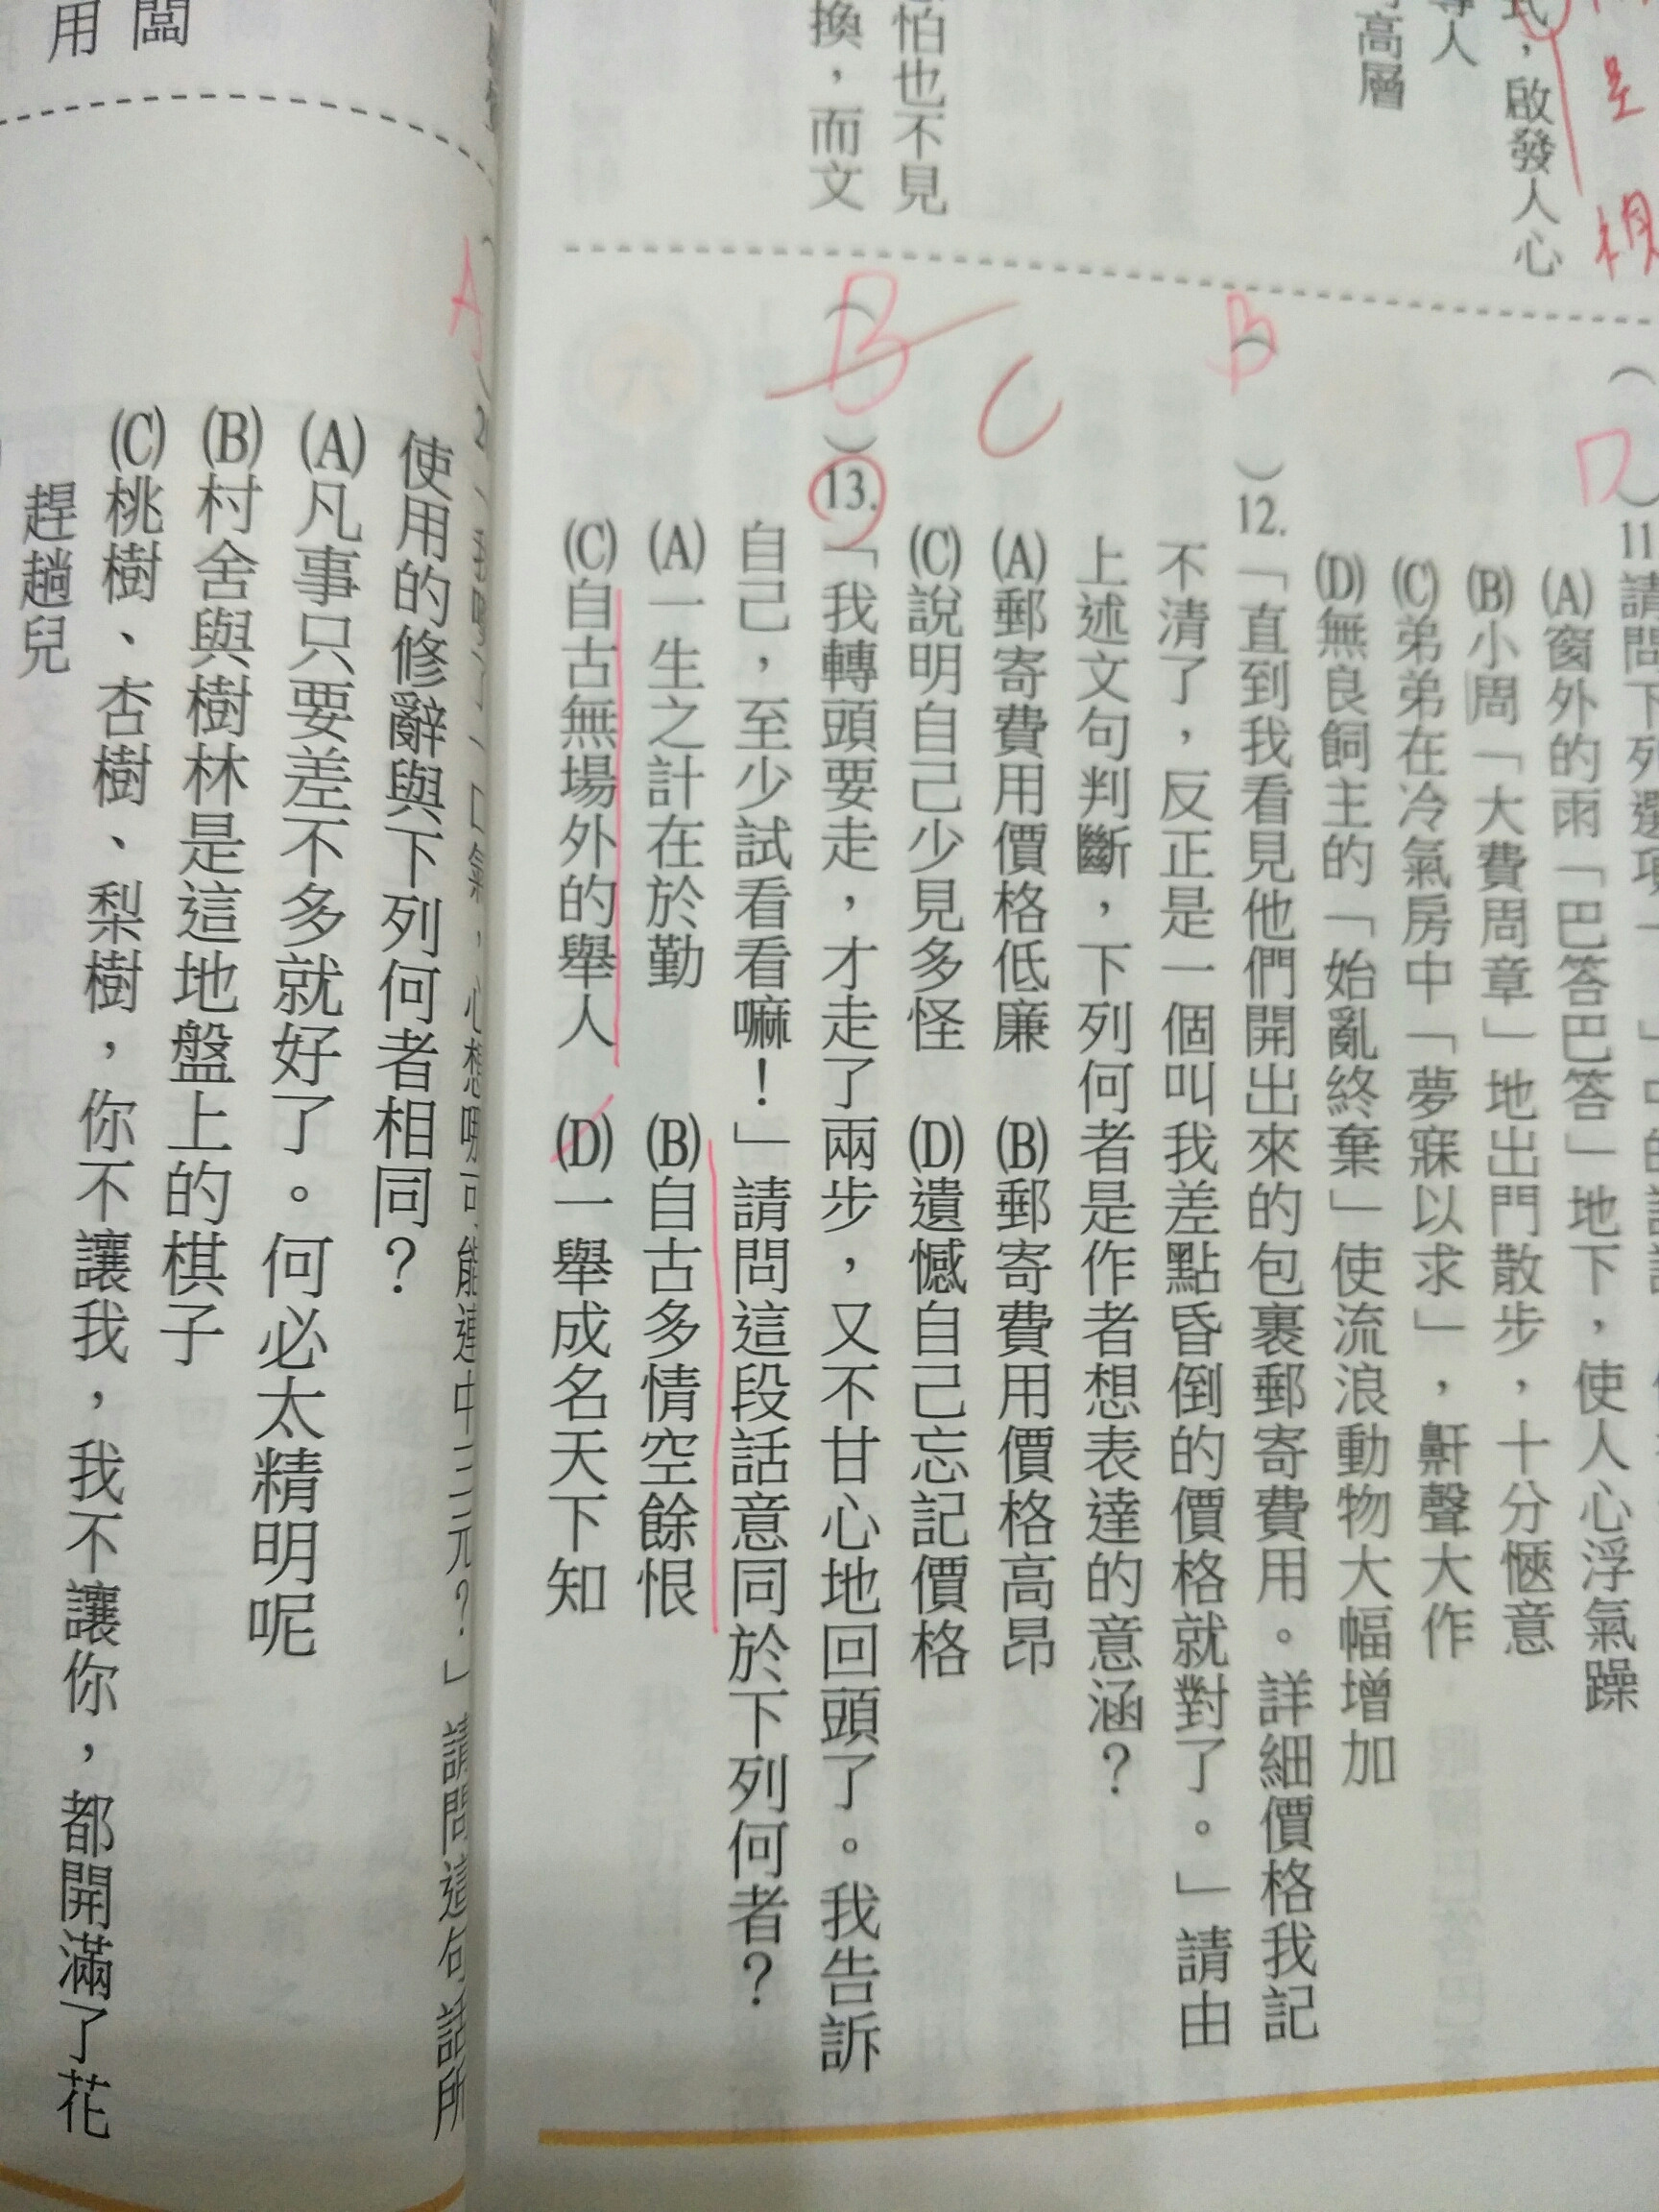 式，啟發人心
導人
高層
怕也不見
換，而文
B
B
C
(A)窗外的雨「巴答巴答」地下，使人心浮氣躁
(B)小周「大費周章」地出門散步，十分愜意
(C)弟弟在冷氣房中「夢寐以求」，鼾聲大作
(D)無良飼主的「始亂終棄」使流浪動物大幅增加
（ ）12.「直到我看見他們開出來的包裹郵寄費用。詳細價格我記
不清了，反正是一個叫我差點昏倒的價格就對了。」請由
上述文句判斷，下列何者是作者想表達的意涵？
(A)郵寄費用價格低廉 (B)郵寄費用價格高昂
(C)說明自己少見多怪 (D)遺憾自己忘記價格
（ ）13.「我轉頭要走，才走了兩步，又不甘心地回頭了。我告訴
自己，至少試看看嘛！」請問這段話意同於下列何者？
(A)一生之計在於勤 (B)自古多情空餘恨
(C)自古無場外的舉人 (D)一舉成名天下知
闆
用
A
心想哪可能連中三元？」請問這句話所
使用的修辭與下列何者相同？
(A)凡事只要差不多就好了。何必太精明呢
(B)村舍與樹林是這地盤上的棋子
(C)桃樹、杏樹、梨樹，你不讓我，我不讓你，都開滿了花
趕趟兒